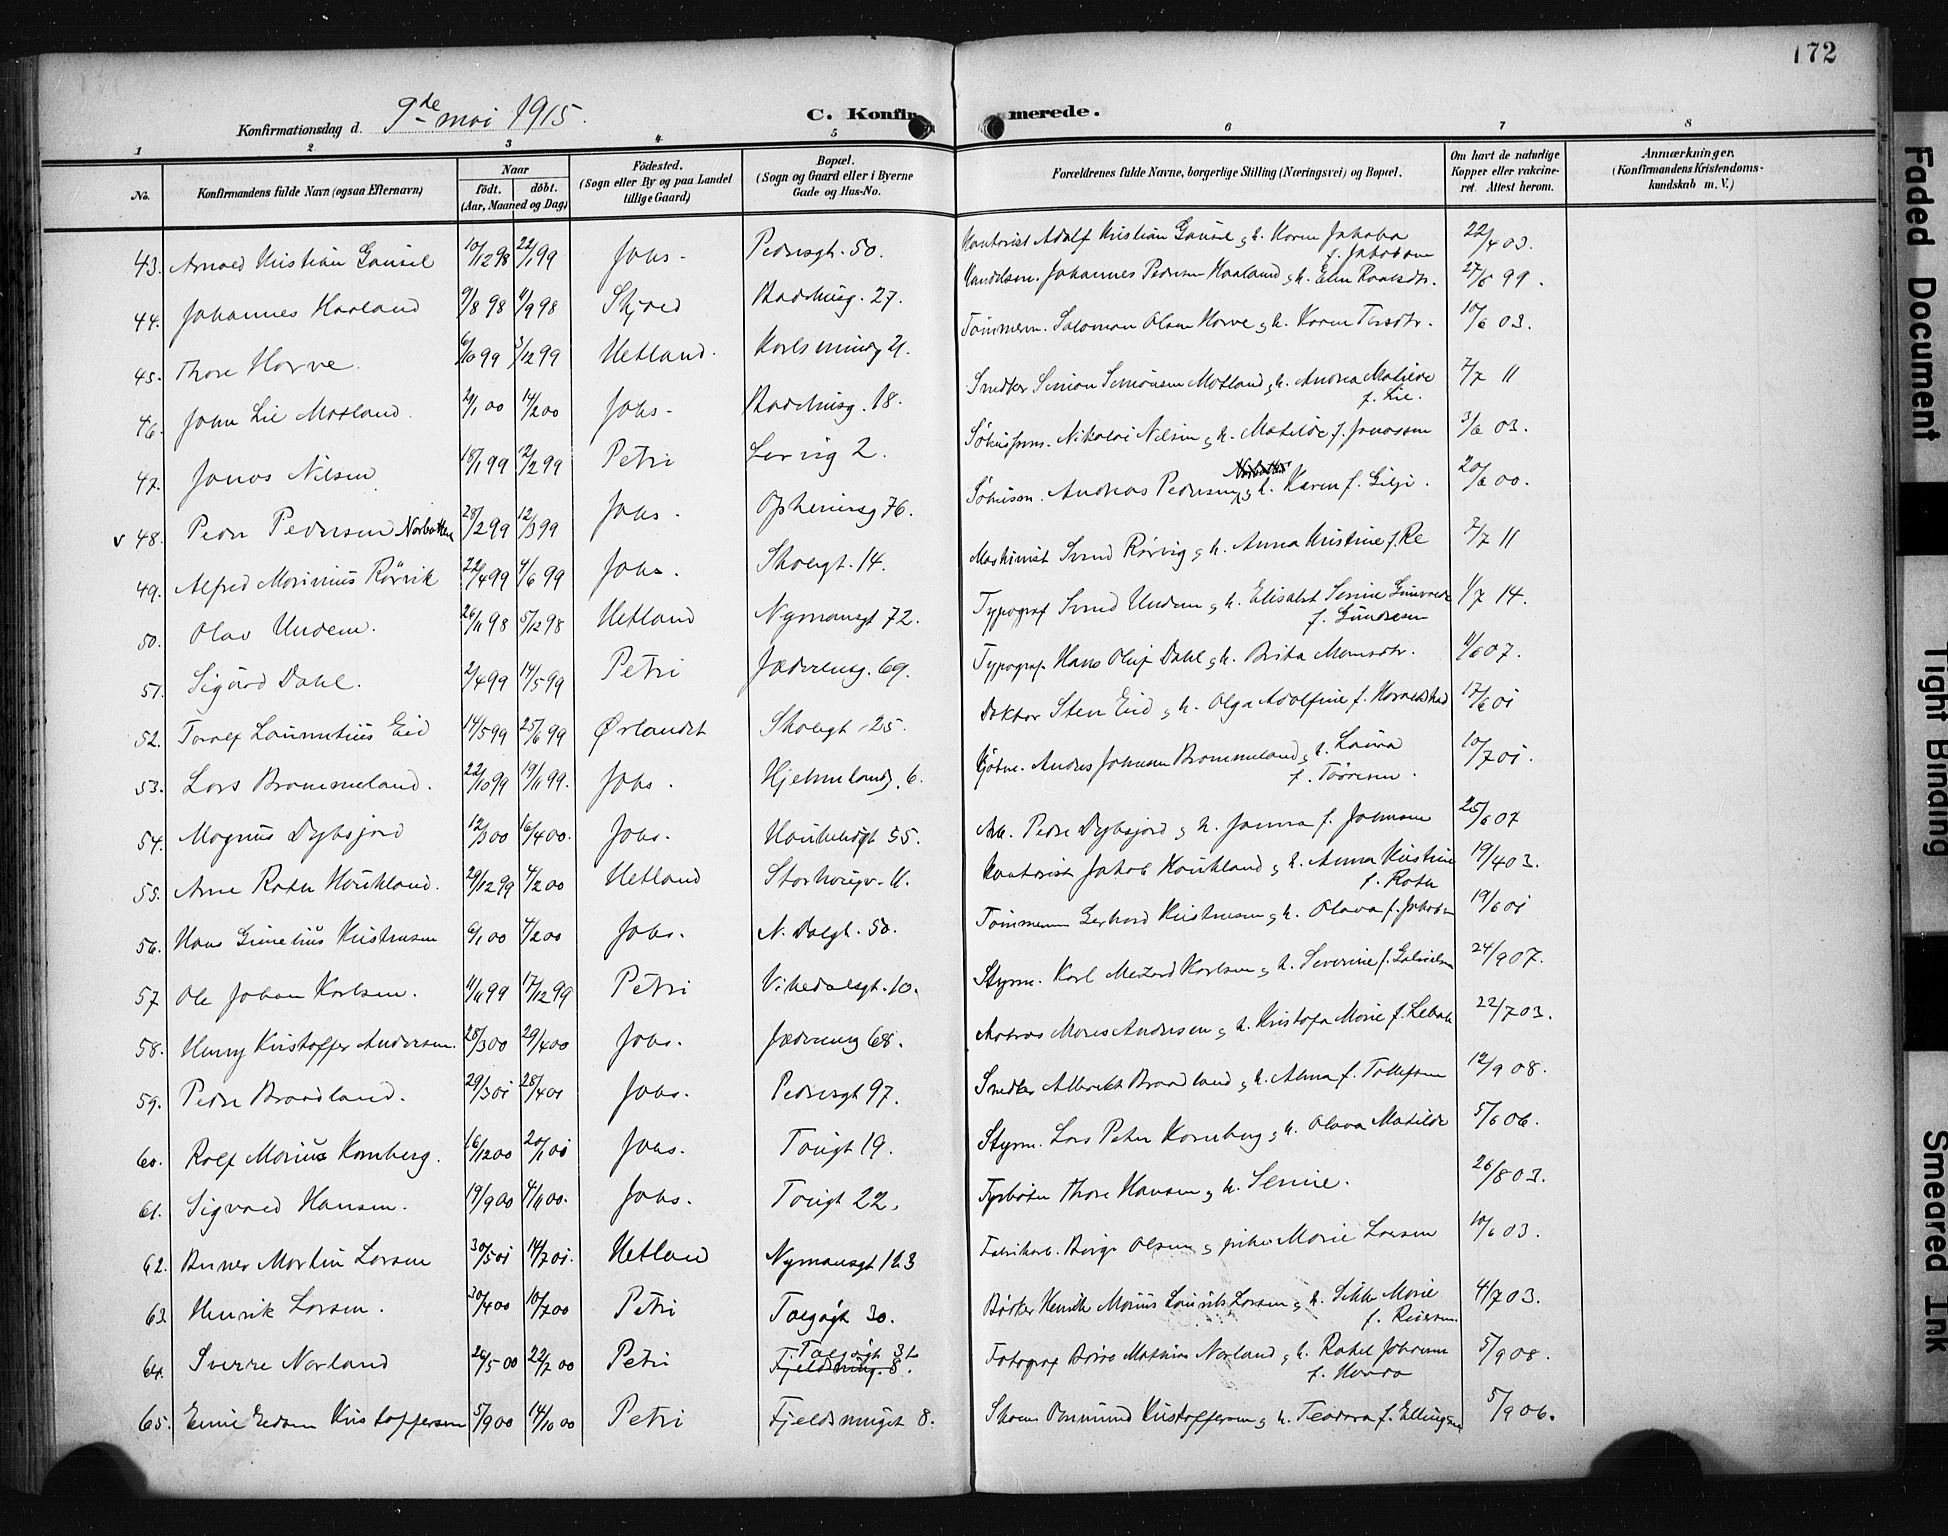 172
Konfirmationsdag d. 9de mai 1915.
C. Konfirmerede.
1 2 3 4 5 6 7 8
No.
Konfirmandens fulde Navn (ogsaa Efternavn)
Naar
født. døbt.
(Aar, Maaned og Dag)
Fødested.
(Sogn eller By og paa Landet
tillige Gaard)
Bopæl.
(Sogn og Gaard eller i Byerne
Gade og Hus-No.
Forældrenes fulde Navne, borgerlige Stilling (Næringsvei) og Bopæl.
Om havt de naturlige
Kopper eller vakcine-
ret. Attest herom.
Anmærkninger.
(Konfirmandens Kristendoms-
kundskab m. V.)
43. Arnold Kristian Gausel 10/12 98 22/1 99 Johs. Pedersgt. 50. Kontorist Adolf Kristian Gausel g. h. Karen Jakoba f. Jakobsen 22/4 03.
44. Johannes Haaland 9/8 98 4/9 98 Skjold Badehusg. 27. Handelsm. Johannes Pedersen Haaland g. h. Elen 27/6 99.
45. Thore Horve. 6/10 99 3/12 99 Hetland. Karlsmindeg 21. Tømmerm. Salomon Olsen Horve g. h. Karen 10/6 03.
46. John Lie Motland. 29/1 00 14/2 00 Johs. Badehusg. 18. Snedker Simon Simonsen Motland g. h. Andrea Matilde f. Lie. 7/7 11
47. Jonas Nilsen 18/1 99 12/2 99 Petri Lervig 2. Nikolai Nilsen g. h. Matilde f. Jonassen 3/6 03.
v 48. Peder Pedersen Norbotten 28/2 99 12/3 99 Johs. Opheimsg 76. Andreas Pedersen g. h. Karen f. Gilje. 20/6 00.
49. Alfred Marinius Rørvik 22/4 99 4/6 99 Johs. Skolegt. 14. Maskinist Svend Rørvig g. h. Anna Kristine f. Re 7/7 11
50. Olav Undem. 26/11 98 5/12 98 Hetland Nymansgt 72. Typograf Svend Undem g. h. Elisabet Serine f. Gundersen 1/7 14.
51. Sigurd Dahl. 2/4 99 14/5 99 Petri Jæderveig. 69. Typograf Hans Oluf Dahl g. h. Brita Monsdtr. 4/6 07.
52. Toralf Laurentius Eid 14/5 99 25/6 99 Ørlandet Skolegt. 25. Doktor Sten Eid g. h. Olga Adolfine f. 17/6 01
53. Lars Brommeland. 22/10 99 19/11 99. Johs. Hjelmelandg. 6. Andres Johnsen Brommeland g. h. Laura f. Tøresen. 10/7 01.
54. Magnus Dybsjord 12/3 00 16/4 00. Johs. Haukeligt 55. Arb. Peder Dybsjord g. h. Janna f. Johnsen 25/6 07
55. Arne Roth Haukland. 29/12 99 4/2 00 Hetland Storhougv. 11. Kontorist Jakob Haukland g. h. Anna Kristine f. Roth 19/4 03.
56. Hans Kristensen 6/1 00 4/2 00 Johs. N. Dalgt. 50. Tømmerm Gerhard Kristensen g. h. Olava f. Jakobsen 19/6 01
57 Ole Johan Karlsen. 11/11 99 17/12 99 Petri Vikedalsgt. 10. Styrm. Karl Karlsen g. h. Severine f. Gabrielsen 24/9 07.
58. Henry Kristoffer Andersen. 28/3 00 29/4 00 Johs. Jæderveig 68. Matros Andersen g. h. Kristofa Marie f. 22/7 03.
59. Peder Braadland. 29/3 01 28/4 01 Johs. Pedersgt 97. Snedker Albrekt Braadland g. h. Alma f. Tollefsen 12/9 08.
60. Rolf Marius Kornberg. 16/12 00 20/1 01 Johs. Taugt 19. Styrm. Lars Peter Kornberg g. h. Olava Matilde 5/6 06.
61. Sigvald Hansen. 19/9 00 4/11 00. Johs. Taugt 22. Fyrbøter Thore Hansen g. h. Serine. 26/8 03.
62. Berner Martin Larsen 30/5 01 14/7 01. Hetland Nymansgt 123 Fabrikarb. Børge Olsen g pike Marie Larsen 10/6 03.
63 Henrik Larsen. 30/4 00 10/7 00 Petri Torggt 30. Bødker Henrik Marius Laurits Larsen g. h. Marie f. Reiersen. 4/7 03.
64. Sverre Norland 26/5 00 22/7 00 Petri Fjeldsmug. 8. Fotograf Mathias Norland g. h. Rakel Johnsen 5/9 08.
65. Kristoffersen 5/9 00 14/10 00 Petri Fjeldsmuget 8. Skom. Osmund Kristoffersen g. h. Teodora f. Ellingsen 5/9 06.
Faded Document
Tight Binding
Smeared Ink